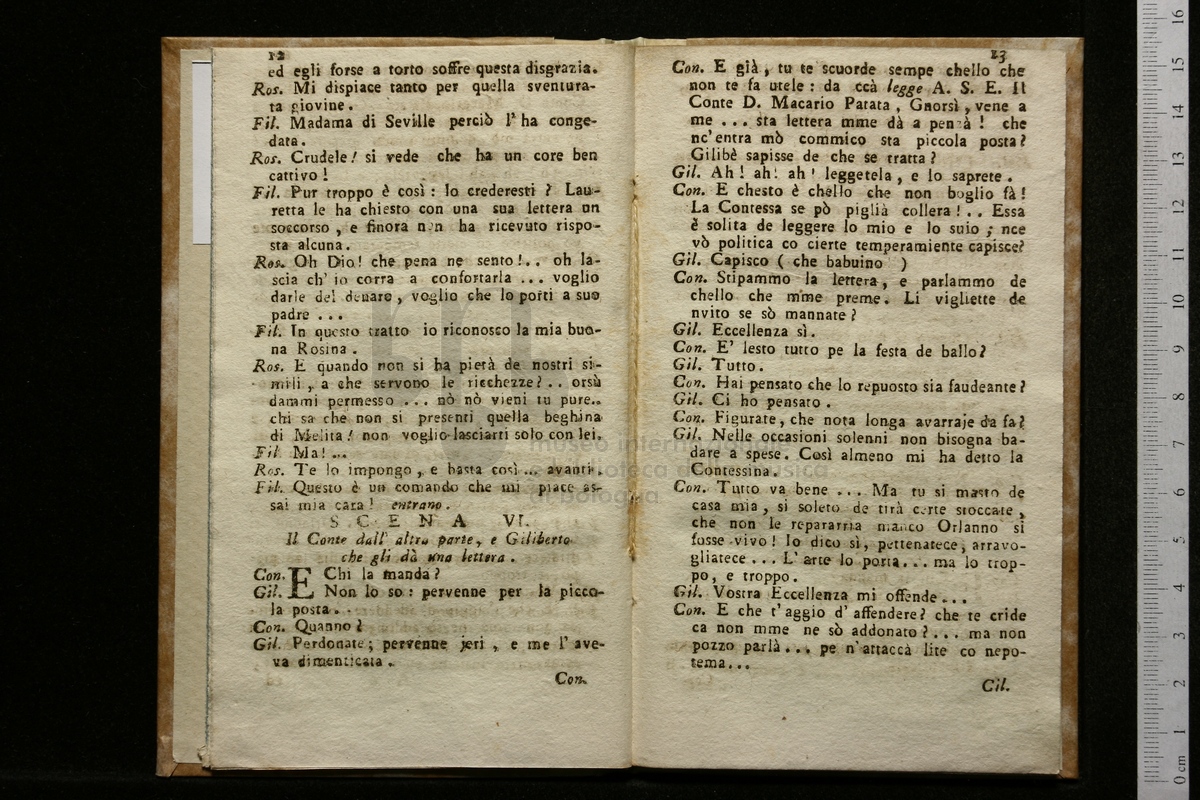 12
ed egli forse a torto soffre questa disgrazia.
Ros. Mi dispiace tanto per quella sventura-
ta giovine.
Fil. Madama di Seville perciò l' ha conge-
data.
Ros. Crudele! si vede che ha un core ben
cattivo!
Fil. Pur troppo è così: lo crederesti? Lau-
retta le ha chiesto con una sua lettera un
soccorso, e finora non ha ricevuto rispo-
sta alcuna.
Ros. Oh Dio! che pena ne sento!.. oh la-
scia ch' io corra a confortarla ... voglio
darle del denaro, voglio che lo porti a suo
padre ...
Fil. In questo tratto io riconosco la mia buo-
na Rosina.
Ros. E quando non si ha pietà de nostri si-
mili, a che servono le ricchezze?.. orsù
dammi permesso ... nò nò vieni tu pure..
chi sa che non si presenti quella beghina
di Melita! non voglio lasciarti solo con lei.
Fil. Ma! ...
Ros. Te lo impongo, e basta così ... avanti.
Fil. Questo è un comando che mi piace as-
sai mia cara! entrano.
SCENA VI.
Il Conte dall' altra parte, e Giliberto
che gli dà una lettera.
Con. E Chi la manda?
Gil. Non lo so: pervenne per la picco-
la posta.
Con. Quanno?
Gil. Perdonate; pervenne jeri, e me l' ave-
va dimenticata.
Con.
13
Con. E già, tu te scuorde sempe chello che
non te fa utele: da ccà legge A. S. E. Il
Conte D. Macario Patata, Gnorsì, vene a
me ... sta lettera mme dà a penzà! che
nc'entra mò commico sta piccola posta?
Gilibè sapisse de che se tratta?
Gil. Ah! ah! ah! leggetela, e lo saprete.
Con. E chesto è chello che non boglio fà!
La Contessa se pò piglià collera!.. Essa
è solita de leggere lo mio e lo suio; nce
vò politica co cierte temperamiente capisce?
Gil. Capisco ( che babuino )
Con. Stipammo la lettera, e parlammo de
chello che mme preme. Li vigliette de
nvito se sò mannate?
Gil. Eccellenza sì.
Con. E' lesto tutto pe la festa de ballo?
Gil. Tutto.
Con. Hai pensato che lo repuosto sia faudeante?
Gil. Ci ho pensato.
Con. Figurate, che nota longa avarraje da fa?
Gil. Nelle occasioni solenni non bisogna ba-
dare a spese. Così almeno mi ha detto la
Contessina.
Con. Tutto va bene ... Ma tu si masto de
casa mia, si soleto de tirà certe stoccate,
che non le repararria manco Orlanno si
fosse vivo! Io dico sì, pettenatece, arravo-
gliatece ... L' arte lo porta... ma lo trop-
po, e troppo.
Gil. Vostra Eccellenza mi offende...
Con. E che t'aggio d' affendere? che te cride
ca non mme ne sò addonato?... ma non
pozzo parlà... pe n'attaccà lite co nepo-
tema...
Gil.